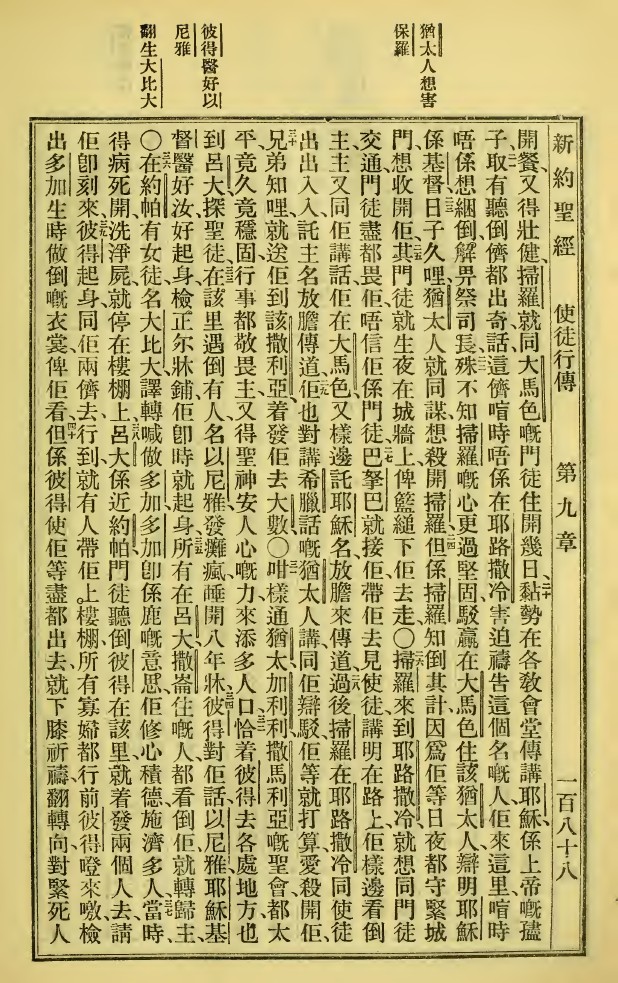 猶太人想害
保羅
彼得醫好以
尼雅
翻生大比大
新約聖經 使徒行傳 第九章 一百八十八
開餐、又得壯健、掃羅就同大馬色嘅門徒住開幾日、二十黏勢在各敎會堂傳講耶穌係上帝嘅孻
子、二一取有聽倒儕都出奇話、這儕喧時唔係在耶路撒冷害迫禱吿這個名嘅人、佢來這里、喧時
唔係想綑倒解畀祭司長、二二殊不知掃羅嘅心更過堅固、駁贏在大馬色住該猶太人、辯明耶穌
係基督、二三日子久哩、猶太人就同謀想殺開掃羅、二四但係掃羅知倒其計、因爲佢等日夜都守緊城
門、想收開佢、二五其門徒就生夜在城牆上俾籃縋下佢去走○二六掃羅來到耶路撒冷、就想同門徒
交通、門徒盡都畏佢、唔信佢係門徒、二七巴拏巴就接佢、帶佢去見使徒、講明在路上佢樣邊看倒
主、主又同佢講話、佢在大馬色、又樣邊託耶穌名放膽來傳道、二八過後掃羅在耶路撒冷同使徒
出出入入、託主名放膽傳道、二九佢也對講希臘話嘅猶太人講、同佢辯駁、佢等就打算愛殺開佢、
三十兄弟知哩、就送佢到該撒利亞、着發佢去大數○三一咁樣通猶太加利利撒馬利亞嘅聖會都太
平、竟久竟穩固、行事都敬畏主、又得聖神安人心嘅力來添多人口、三二恰着彼得去各處地方、也
到呂大探聖徒、三三在該里遇倒有人名以尼雅、發癱瘋𬂩開八年牀、三四彼得對佢話、以尼雅、耶穌基
督醫好汝、好起身檢正尔牀鋪、佢卽時就起身、三五所有在呂大撒崙住嘅人都看倒佢、就轉歸主、
○三六在約帕有女徒名大比大、譯轉喊做多加、多加卽係鹿嘅意思、佢修心積德、施濟多人、三七當時
得病死開、洗淨屍、就停在樓棚上、三八呂大係近約帕、門徒聽倒彼得在該里、就着發兩個人去請
佢卽刻來、三九彼得起身同佢兩儕去、行到就有人帶佢上樓棚、所有寡婦都行前彼得噔來噭、檢
出多加生時做倒嘅衣裳俾佢看、四十但係彼得使佢等盡都出去、就下膝祈禱、翻轉向對緊死人